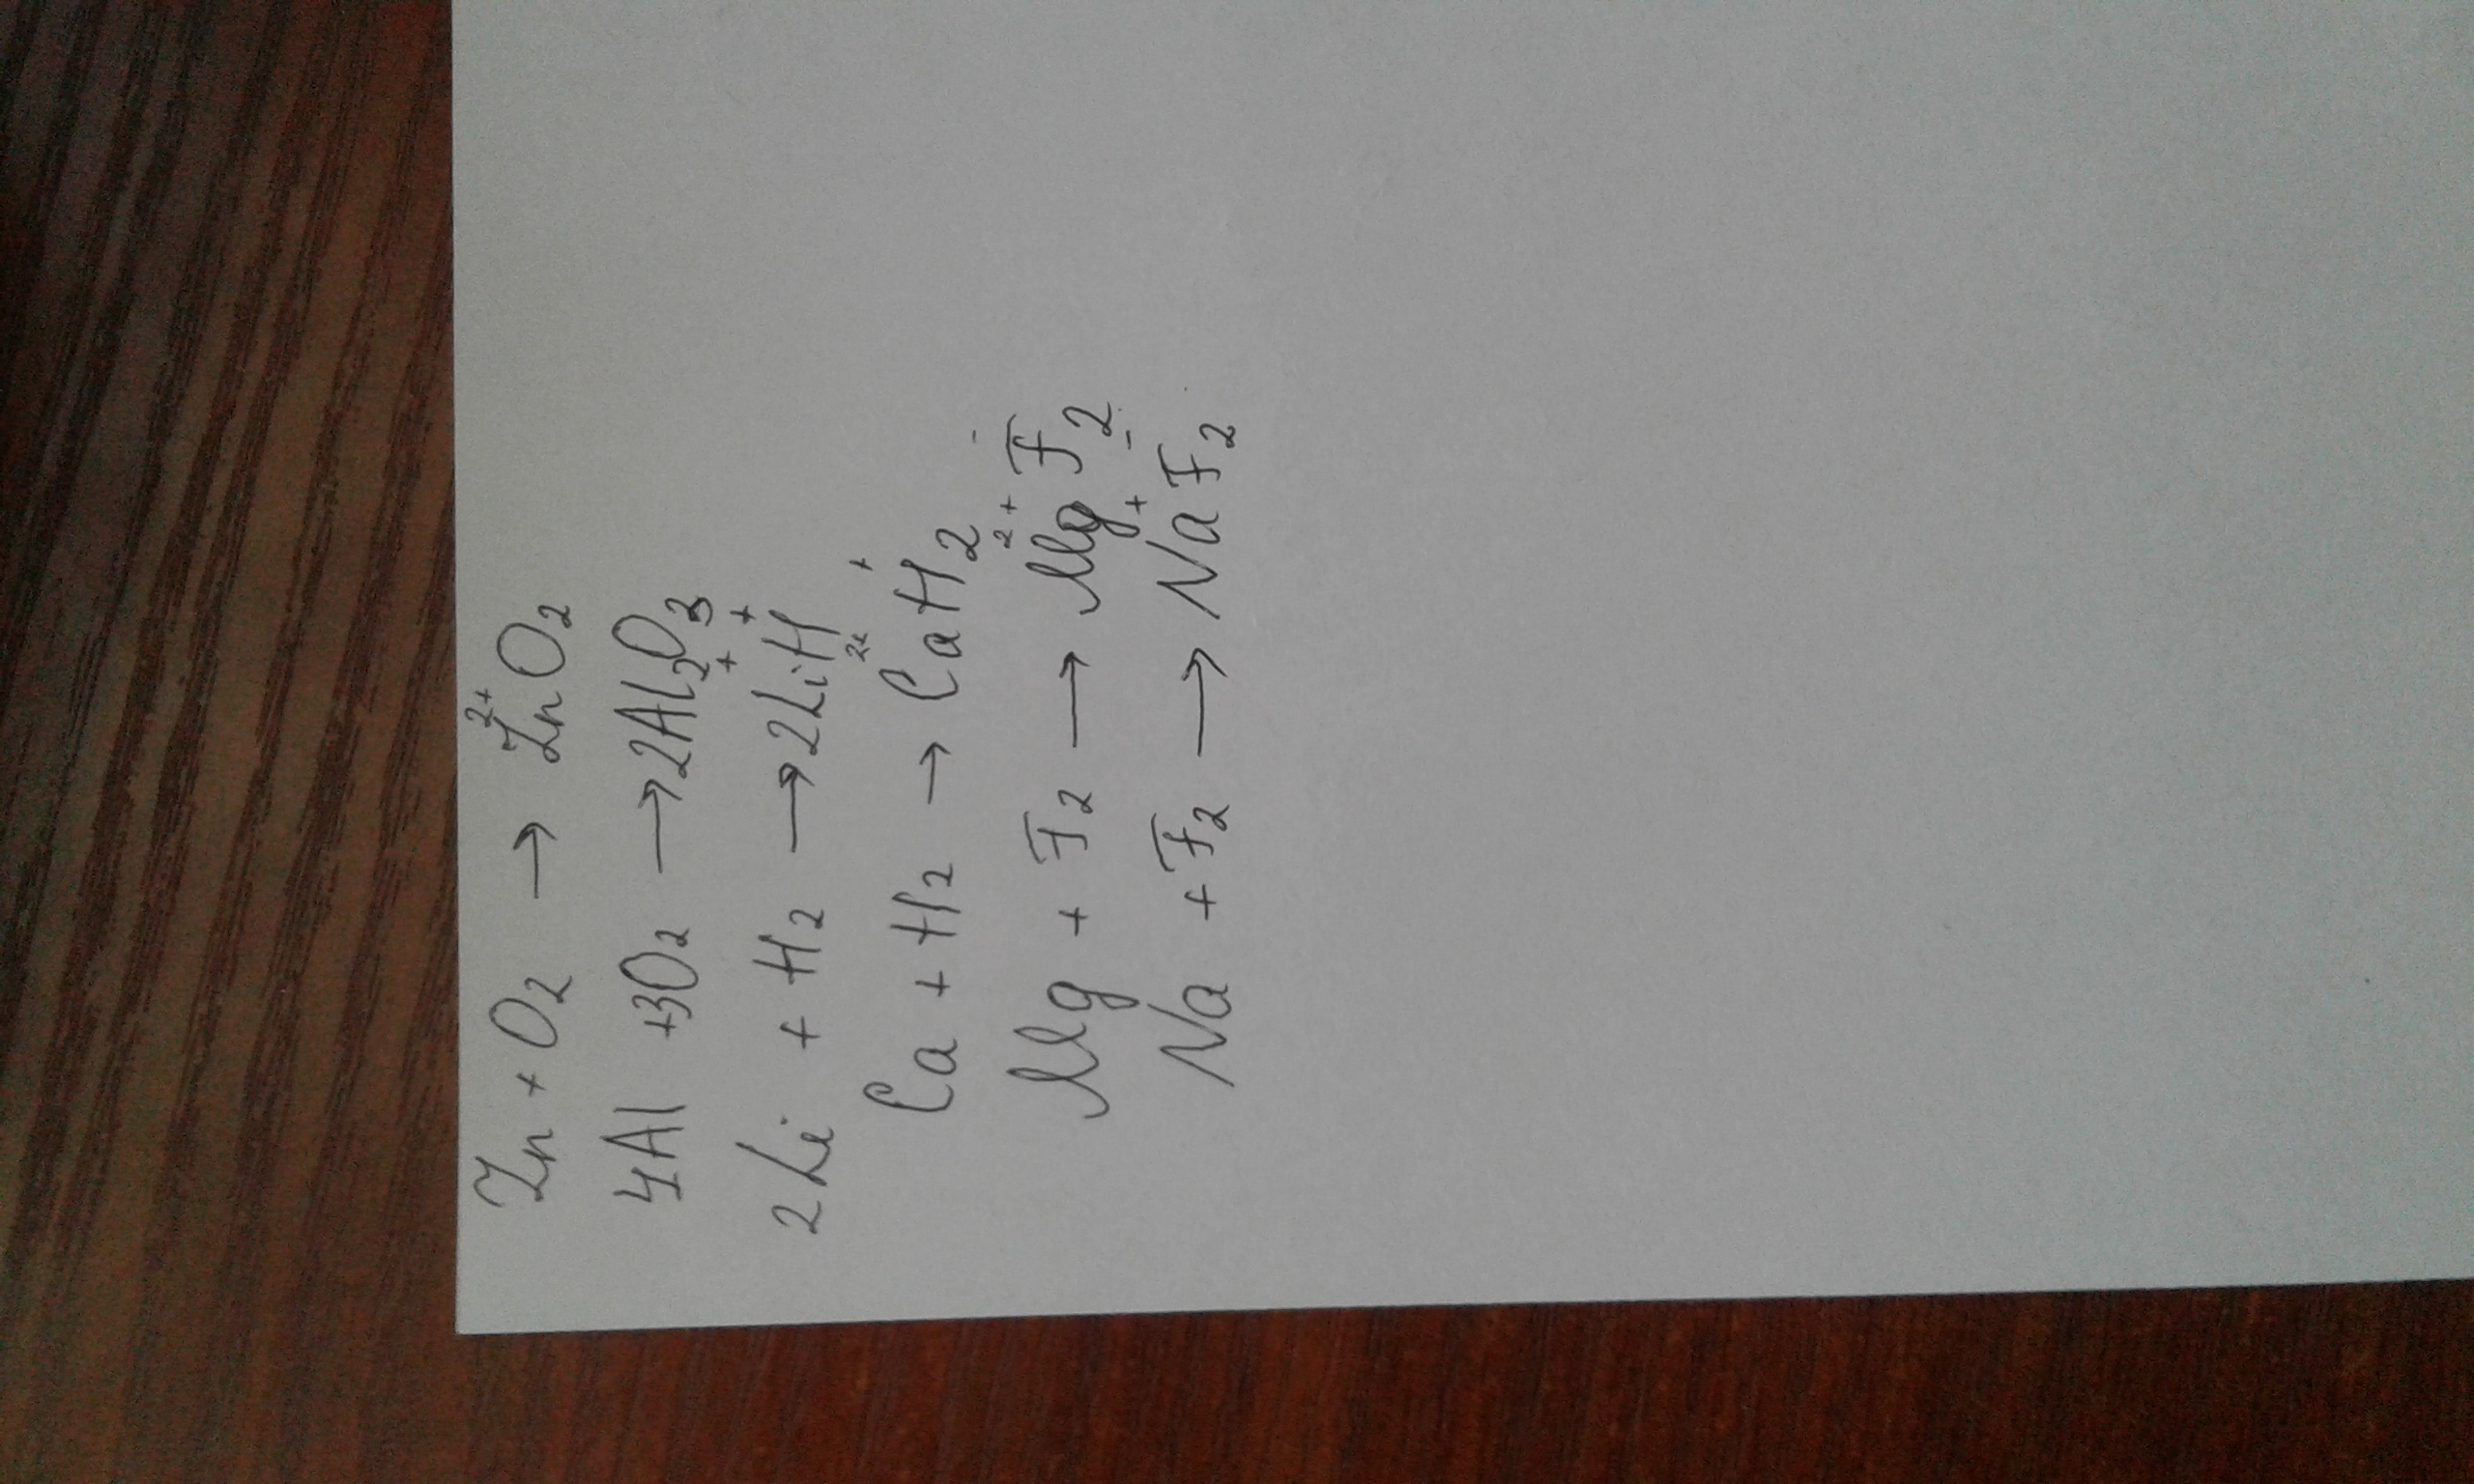 Zn + O₂ → Zn²⁺O₂
4Al + 3O₂ → 2Al₂O₃
2Li + H₂ → 2Li⁺H⁺
Ca + H₂ → Ca²⁺H₂⁺
Mg + F₂ → Mg²⁺F₂⁻
Na + F₂ → Na⁺F₂⁻